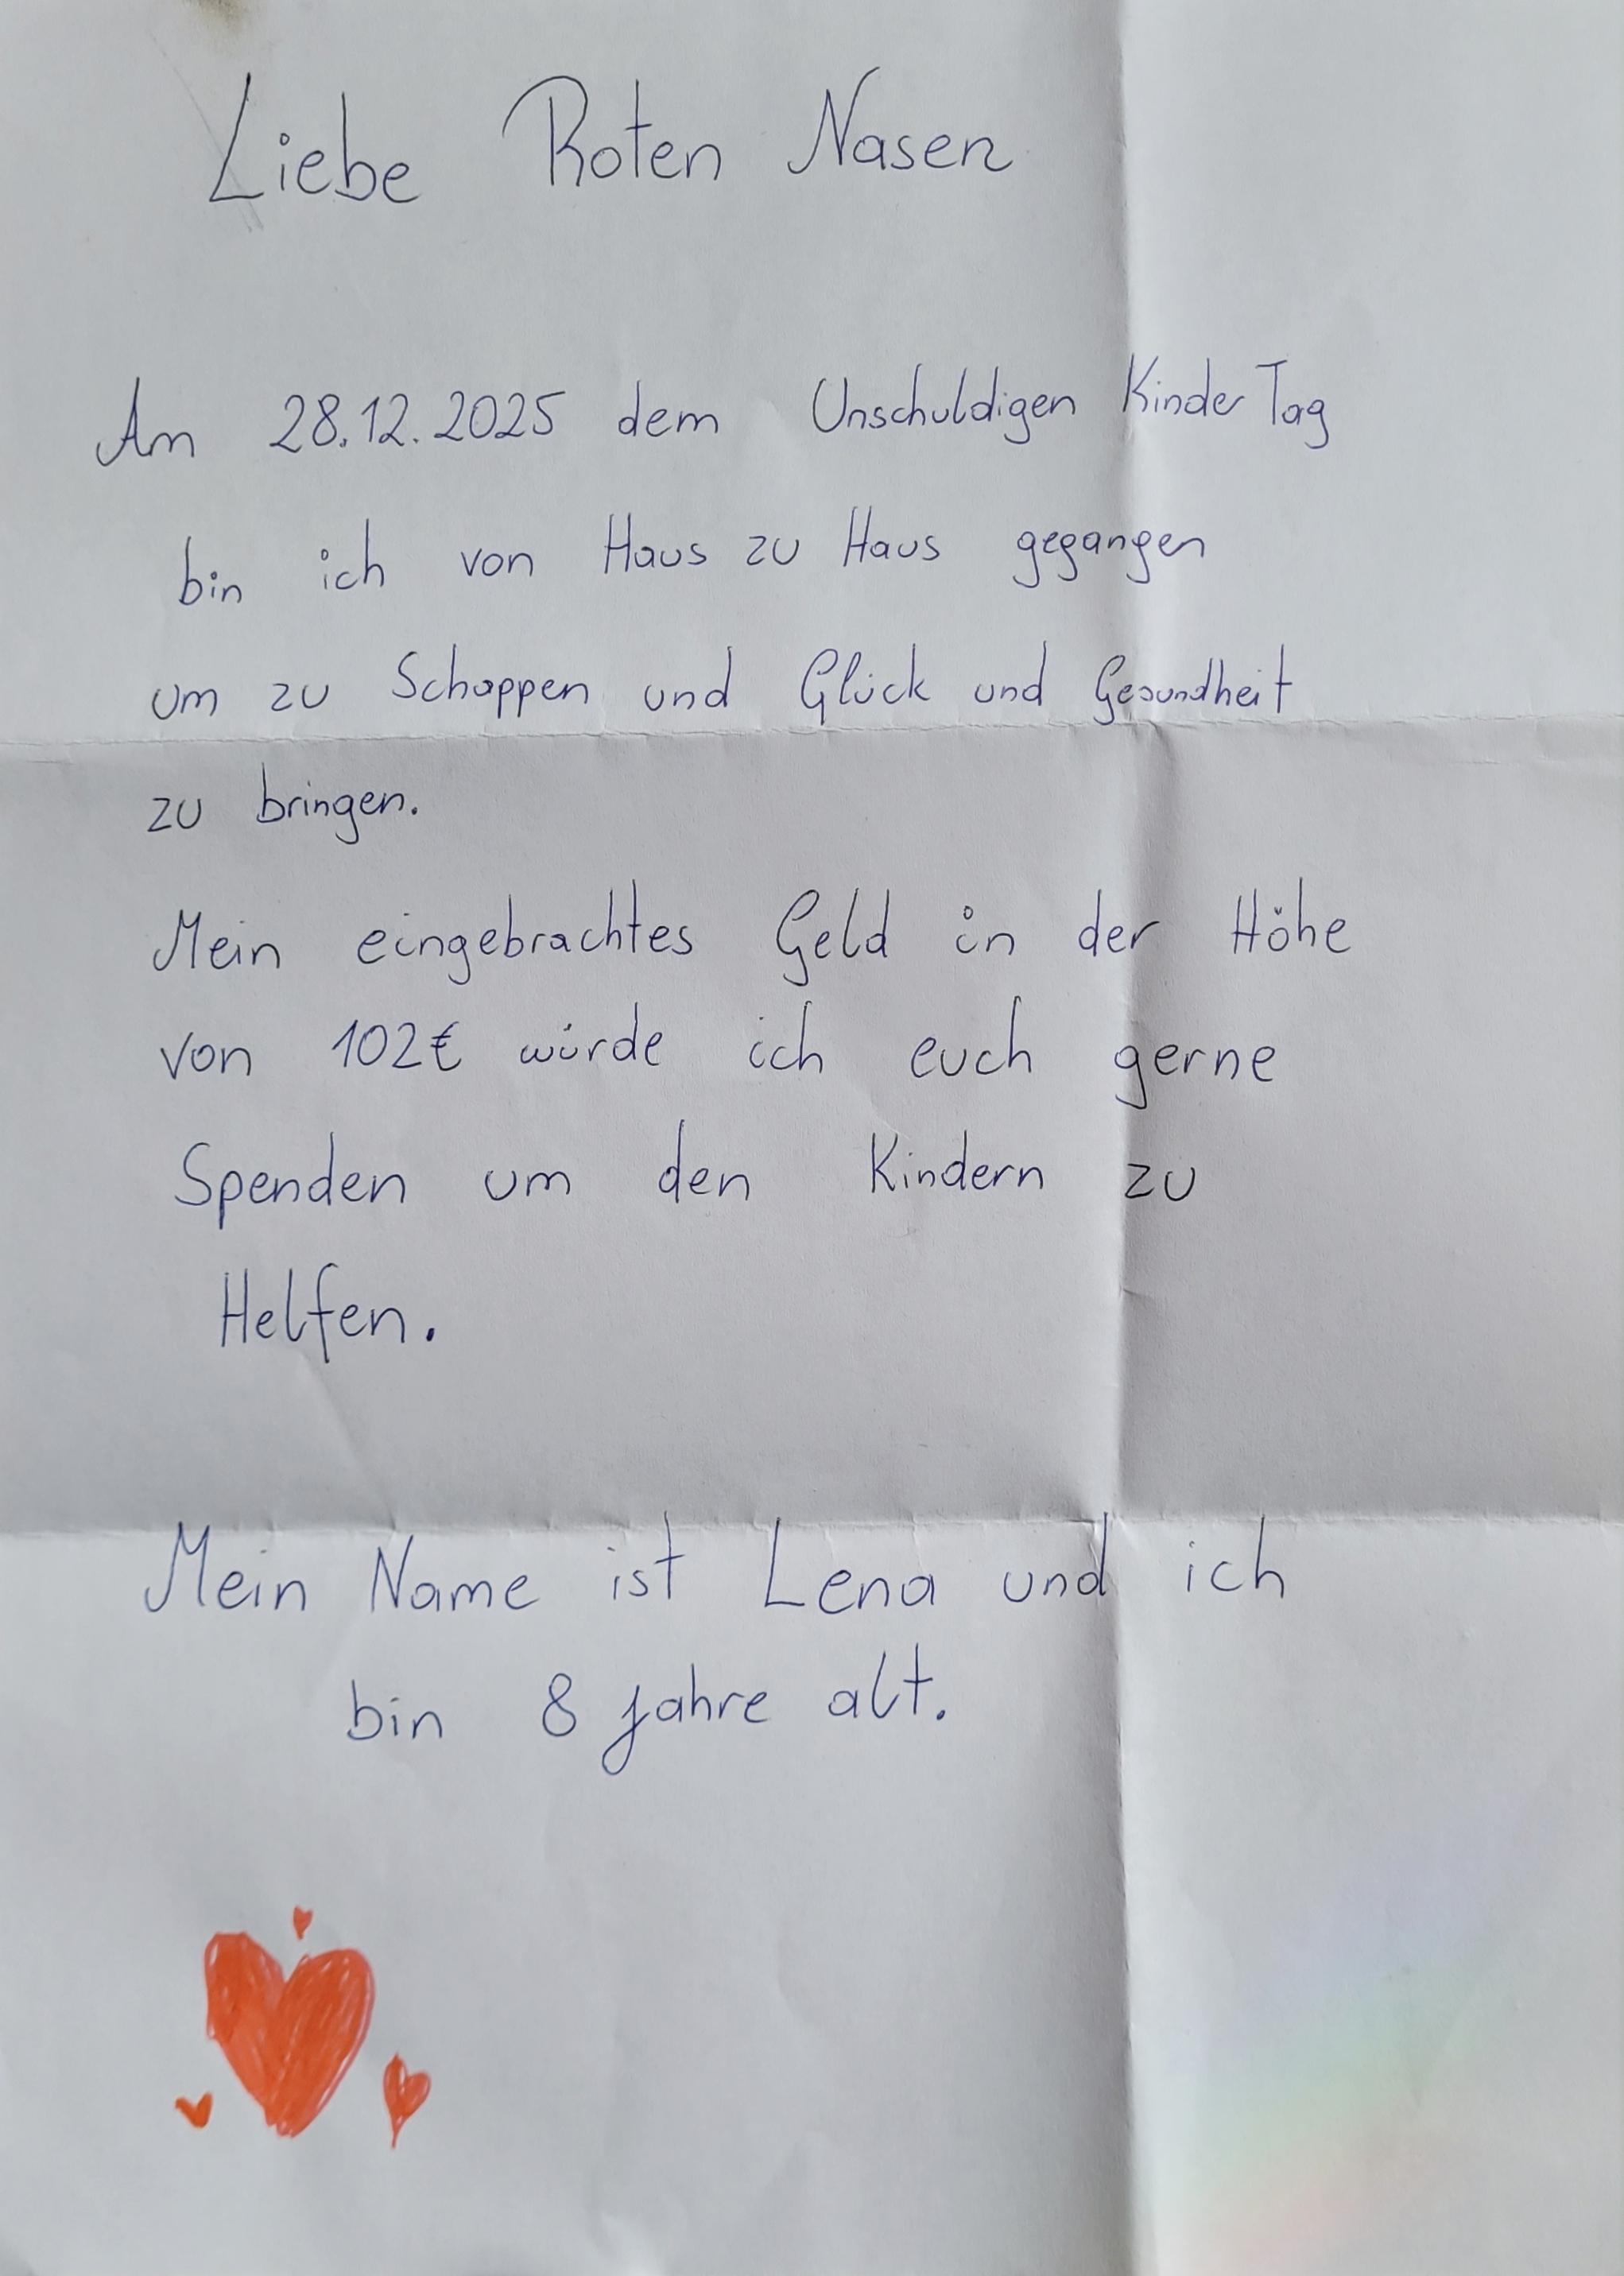 Liebe Roten Nasen
Am 28.12.2025 dem Unschuldigen Kinder Tag
bin ich von Haus zu Haus gegangen
um zu Schappen und Glück und Gesundheit
zu bringen.
Mein eingebrachtes Geld in der Höhe
von 102€ würde ich euch gerne
Spenden um den Kindern zu
Helfen.
Mein Name ist Lena und ich
bin 8 Jahre alt.